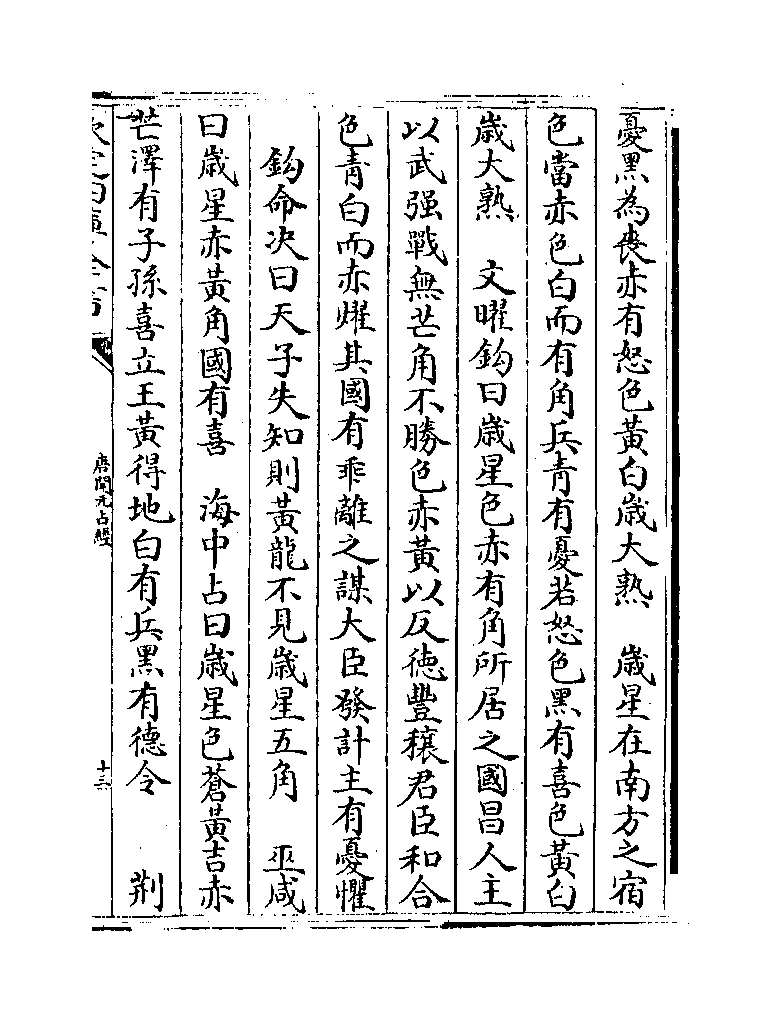 憂黑為喪赤有怒色黃白歳大熟　歳星在南方之宿
色當赤色白而有角兵青有憂若怒色黑有喜色黃白
歳大熟　文曜鈎曰歳星色赤有角所居之國昌人主
以武强戰無芒角不勝色赤黃以反徳豐穰君臣和合
色青白而赤燿其國有乖離之謀大臣發計主有憂懼
鈎命决曰天子失知則黃龍不見歳星五角　巫咸
曰歳星赤黃角國有喜　海中占曰歳星色蒼黃吉赤
芒澤有子孫喜立王黃得地白有兵黑有德令　荆
欽定四庫全書
唐開元占經
十三